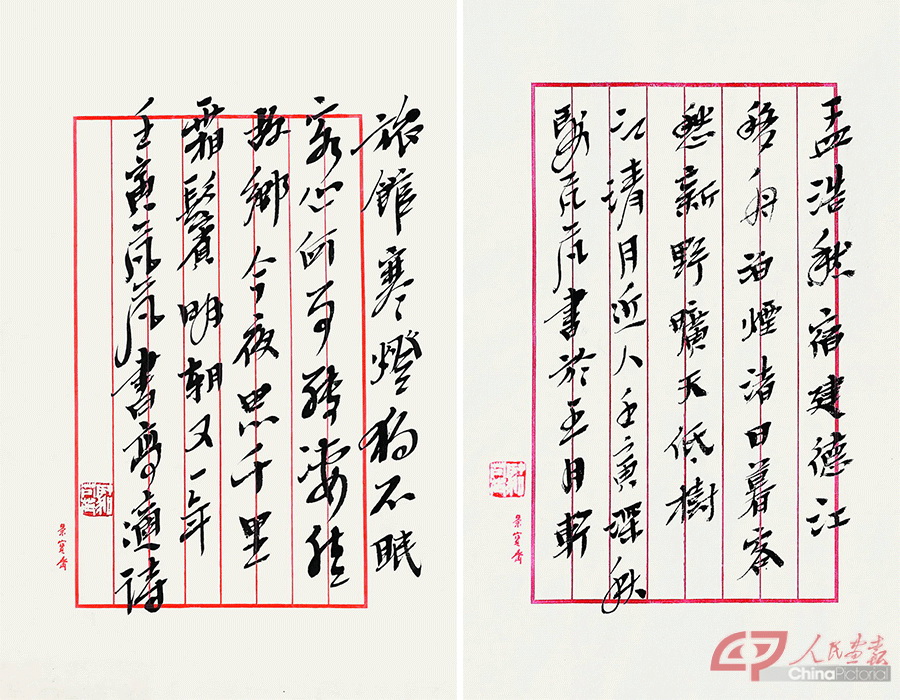 孟浩然宿建德江
移舟泊煙渚日暮客
愁新野曠天低樹
江清月近人壬寅深秋
駱芃芃書於玉月軒
榮寶齋
旅館寒燈獨不眠
客心何事轉凄然
故鄉今夜思千里
霜鬢明朝又一年
壬寅芃芃書高適詩
榮寶齋
人民画报
ChinaPictorial